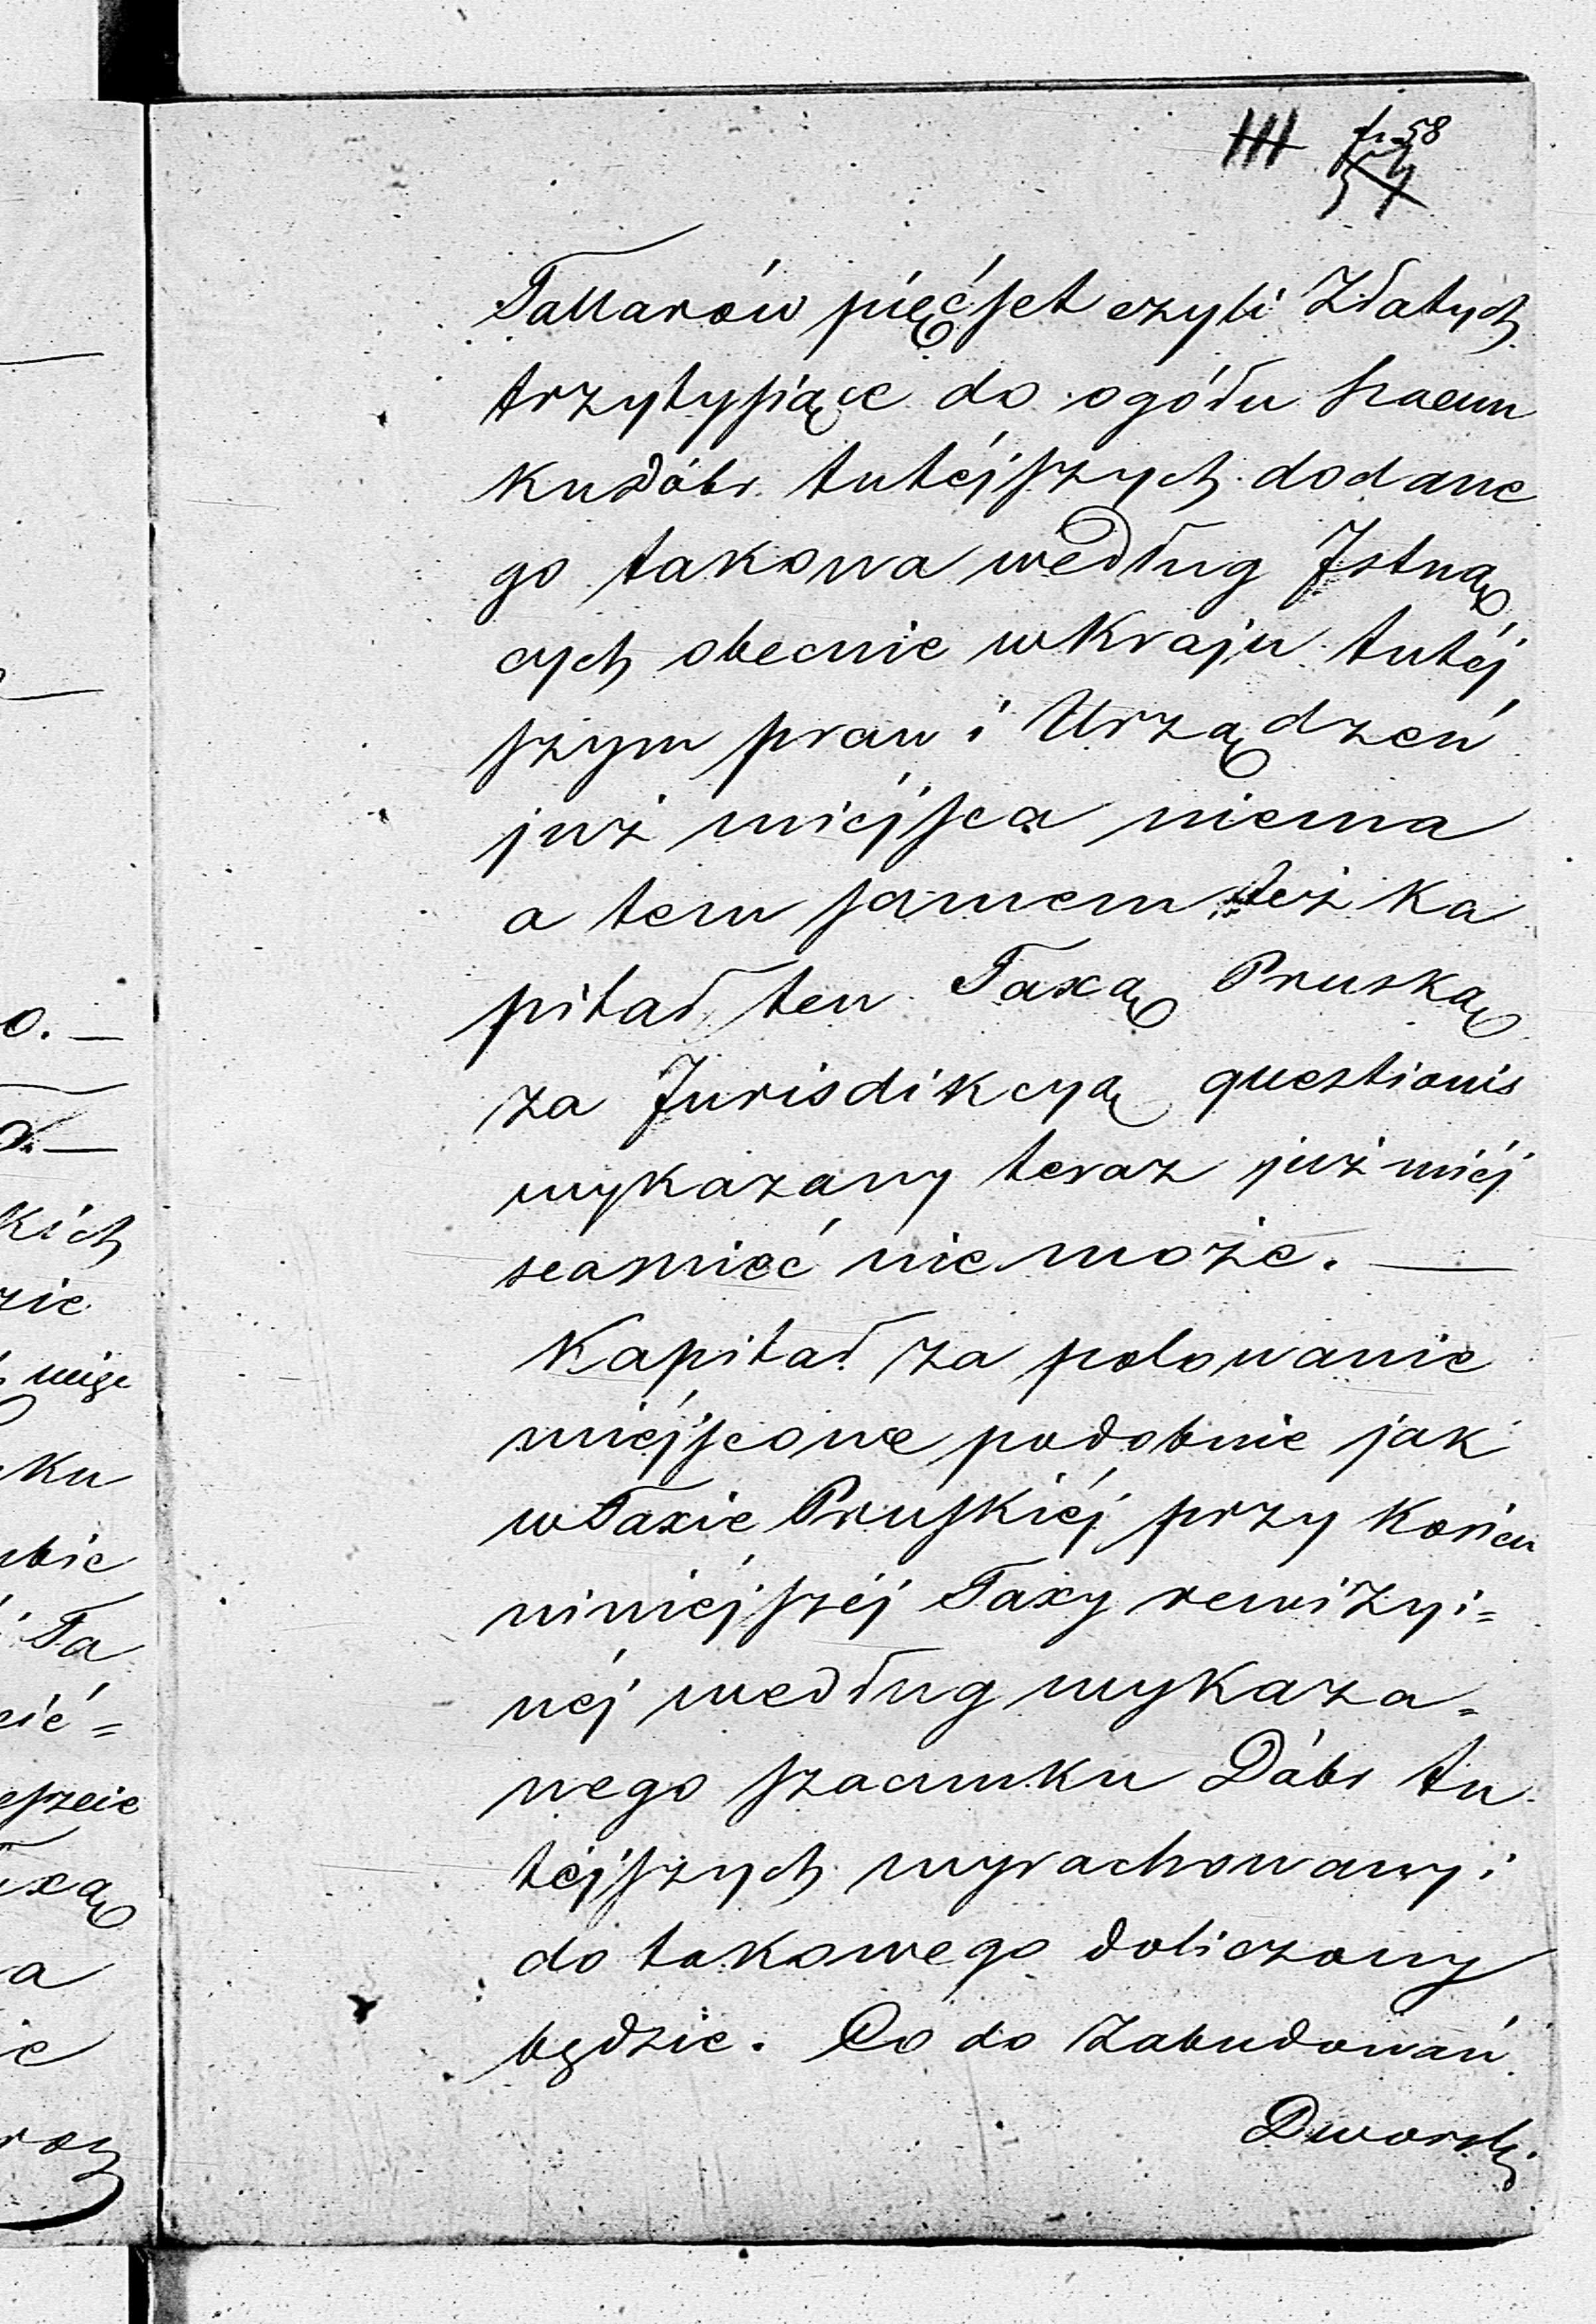 o. —
kich
zie
mige
ku
bie
Ta
cié=
eszcie
xą
a
ie
58
Tallarów pięćset czyli Złotych
trzytysiące do ogółu szacun
ku dóbr tutéjszych dodane
go takowa według Istną
cych obecnie w Kraju tutéj
szym praw i Urządzeń
już miéjsca niema
a tem samem też Ka
pitał ten Taxą Pruską
za Jurisdikcyą questionis
wykazany teraz już miéj
sca mieć nie może. —
Kapitał za polowanie
miéjscowe podobnie jak
w Taxie Pruskiéj przy Końcu
niniéjszéj Taxy rewizyi=
néj według wykaza=
nego szacunku Dóbr tu
téjszych wyrachowany i
do takowego doliczony
będzie. Co do Zabudowań
Dworski